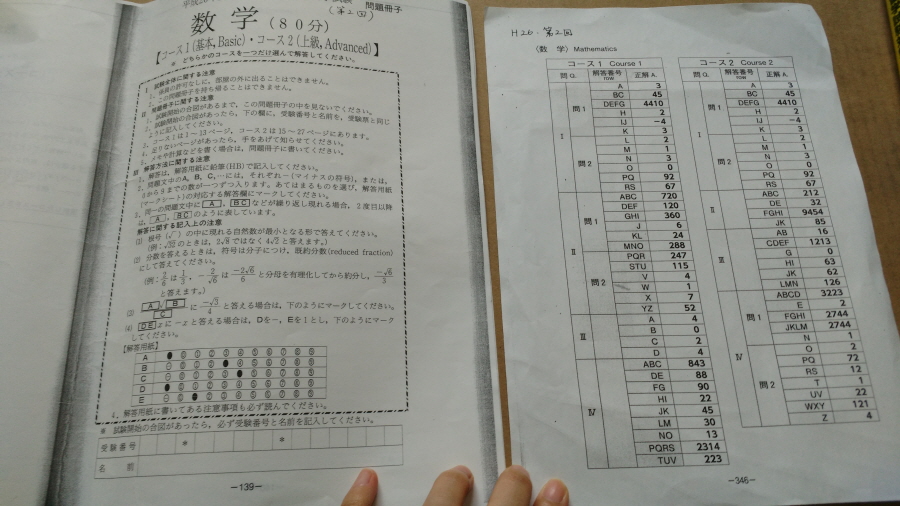 問題冊子
(第2回)
数学 (80分)
【コース1(基本, Basic)・コース2(上級, Advanced)】
※ どちらかのコースを一つだけ選んで解答してください。
I 試験全体に関する注意
1. 係員の許可なしに、部屋の外に出ることはできません。
2. この問題冊子を持ち帰ることはできません。
II 問題冊子に関する注意
1. 試験開始の合図があるまで、この問題冊子の中を見ないでください。
2. 試験開始の合図があったら、下の欄に、受験番号と名前を、受験票と同じ
ように記入してください。
3. コース1は1~13ページ、コース2は15~27ページにあります。
4. 足りないページがあったら、手をあげて知らせてください。
5. メモや計算などを書く場合は、問題冊子に書いてください。
III 解答方法に関する注意
1. 解答は、解答用紙に鉛筆(HB)で記入してください。
2. 問題文中のA, B, C,…には、それぞれ-(マイナスの符号)、または、
0から9までの数が一つずつ入ります。あてはまるものを選び、解答用紙
(マークシート)の対応する解答欄にマークしてください。
3. 同一の問題文中に A , BC などが繰り返し現れる場合、2度目以降
は、 A , BC のように表しています。
解答に関する記入上の注意
(1) 根号(√ )の中に現れる自然数が最小となる形で答えてください。
(例:√32 のときは、2√8 ではなく 4√2 と答えます。)
(2) 分数を答えるときは、符号は分子につけ、既約分数(reduced fraction)
にして答えてください。
(例:2/6 は 1/3, -2/√6 は -2√6/6 と分母を有理化してから約分し、-√6/3
と答えます。)
(3) A √ B / C に -√3/4 と答える場合は、下のようにマークしてください。
(4) DE x に -x と答える場合は、Dを-、Eを1とし、下のようにマーク
してください。
【解答用紙】
A ● 0 1 2 3 4 5 6 7 8 9
B - 0 1 2 ● 4 5 6 7 8 9
C - 0 1 2 3 ● 5 6 7 8 9
D ● 0 1 2 3 4 5 6 7 8 9
E - 0 ● 2 3 4 5 6 7 8 9
4. 解答用紙に書いてある注意事項も必ず読んでください。
※ 試験開始の合図があったら、必ず受験番号と名前を記入してください。
受験番号 * *
名 前
-139-
H26・第2回
〈数 学〉Mathematics
コース1 Course 1
問 Q. 解答番号 row 正解 A.
I 問1 A 3
BC 45
DEFG 4410
H 2
IJ -4
問2 K 3
L 2
M 1
N 3
O 0
PQ 92
RS 67
II 問1 ABC 720
DEF 120
GHI 360
J 6
KL 24
MNO 288
問2 PQR 247
STU 115
V 4
W 1
X 7
YZ 52
III A 4
B 0
C 2
D 4
IV ABC 843
DE 88
FG 90
HI 22
JK 45
LM 30
NO 13
PQRS 2314
TUV 223
コース2 Course 2
問 Q. 解答番号 row 正解 A.
I 問1 A 3
BC 45
DEFG 4410
H 2
IJ -4
問2 K 3
L 2
M 1
N 3
O 0
PQ 92
RS 67
II ABC 212
DE 32
FGHI 9454
JK 85
III AB 16
CDEF 1213
G 0
HI 63
JK 62
LMN 126
IV 問1 ABCD 3223
E 2
FGHI 2744
JKLM 2744
N 1
問2 O 2
PQ 72
RS 12
T 1
UV 22
WXY 121
Z 4
-346-